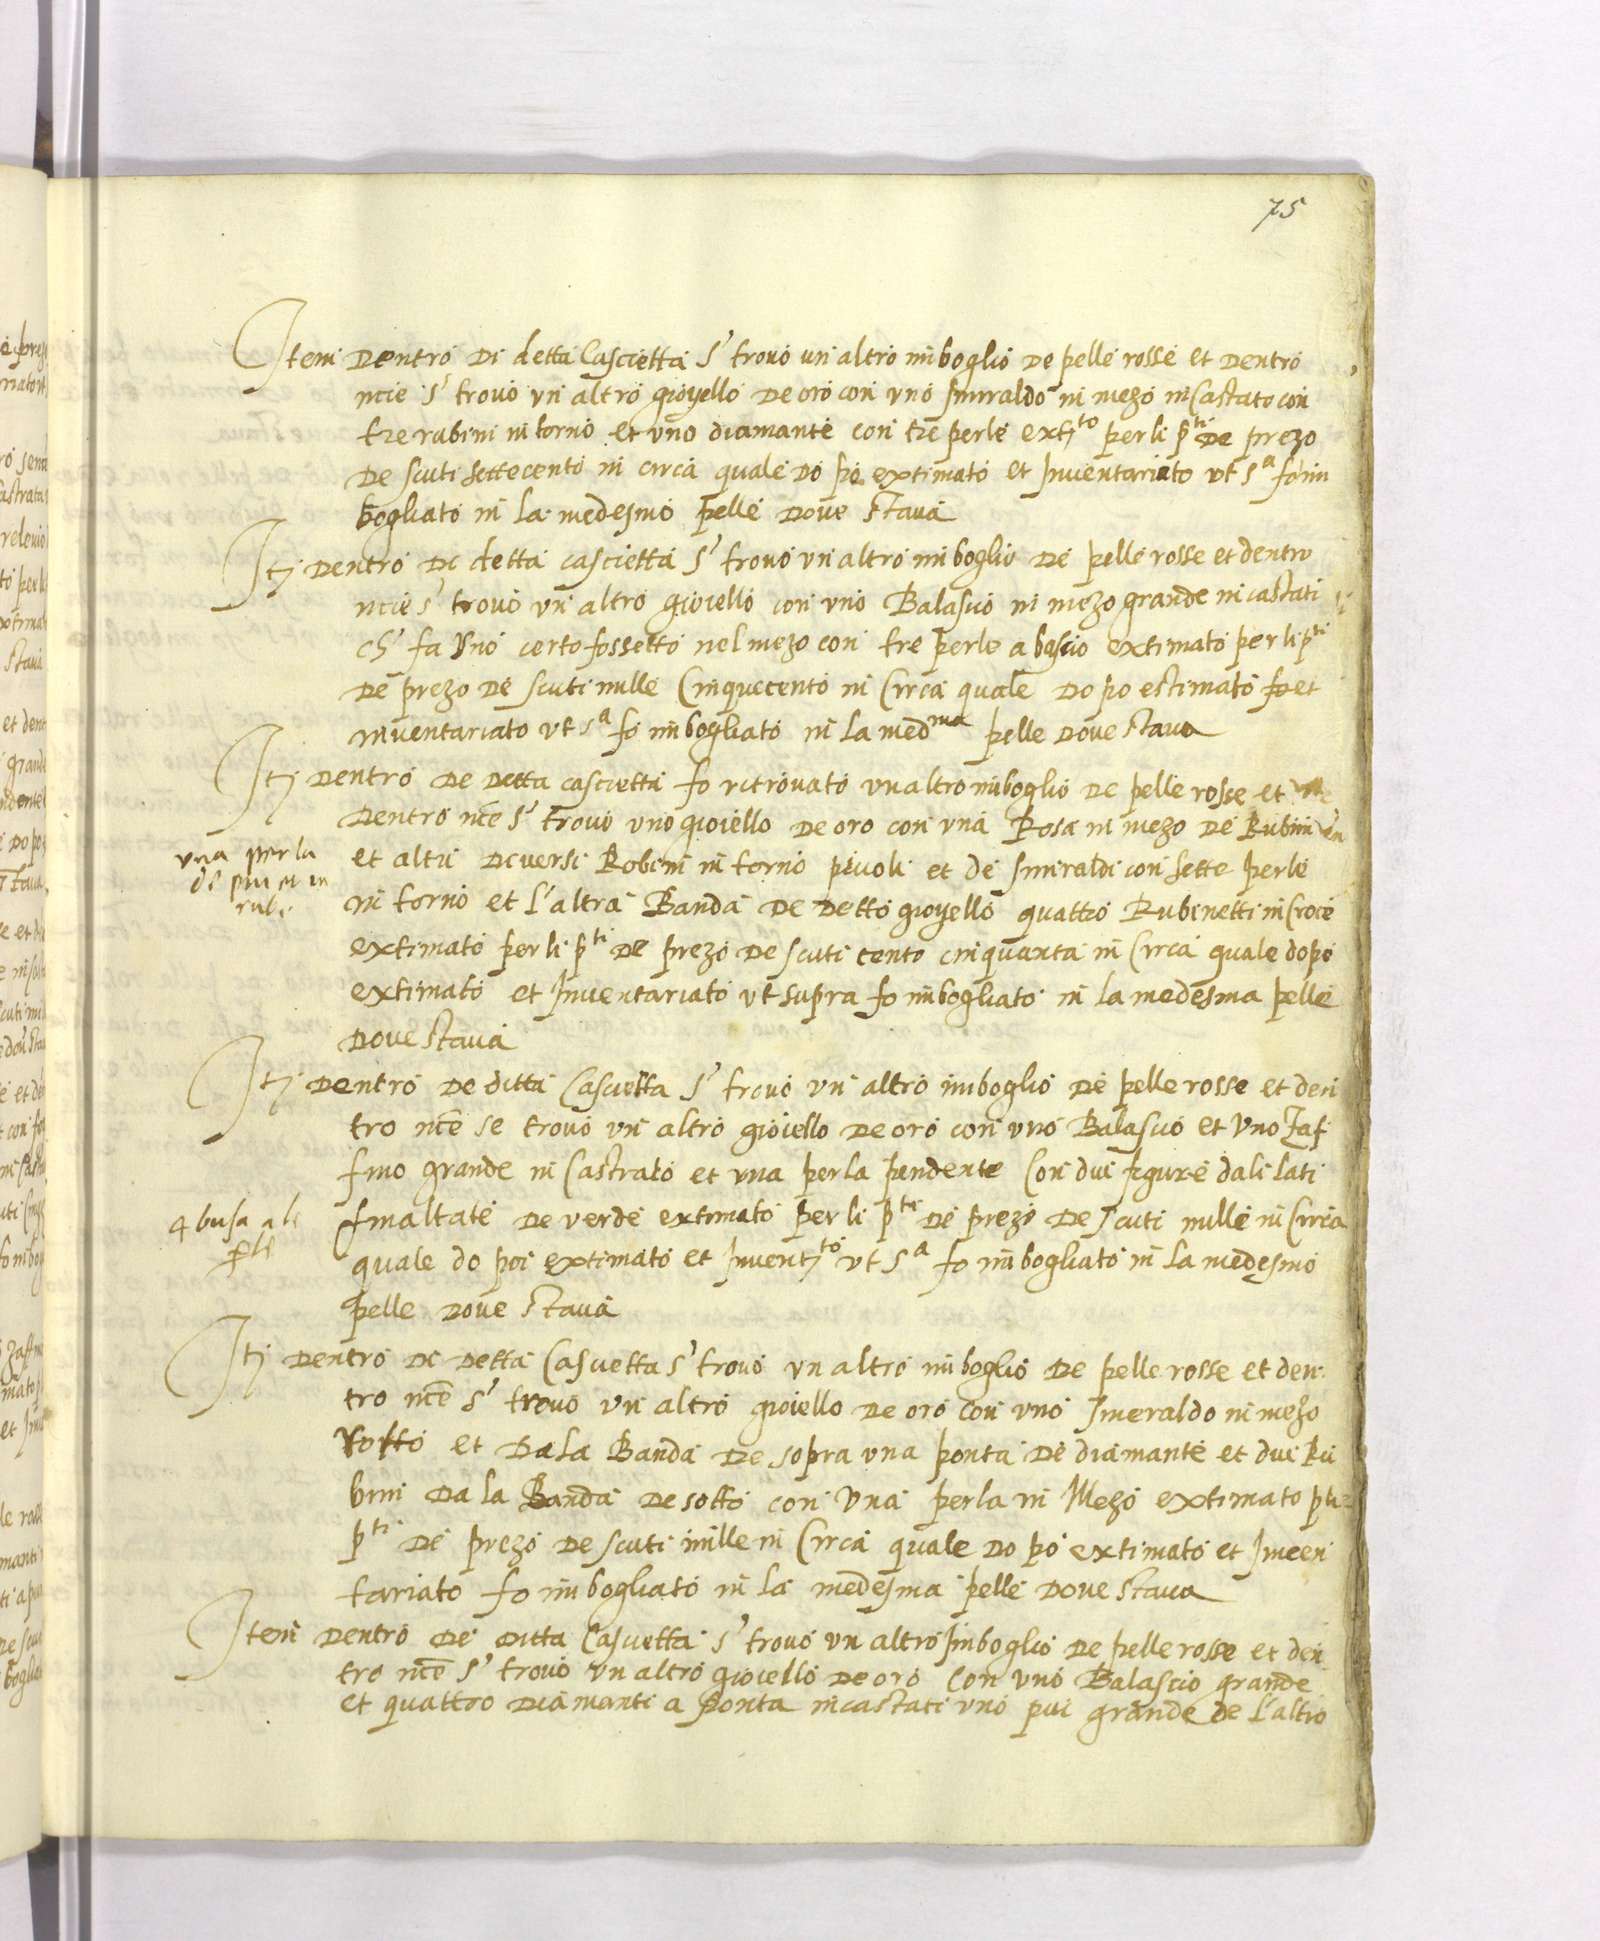 75
Item dentro di detta Cascietta s' trovò un altro imboglio de pelle rosse et dentro
ncie s' trovò un altro gioyello de oro con uno smiraldo in mezo incastato con
tre rubini intorno et uno diamante con tre perle ext.to per li p.ti de prezo
de scuti settecento in circa quale do po extimato et Inventariato ut s.a fo im
bogliato in la medesmo pelle dove stava
Itj dentro di detta cascietta s' trovò un altro imboglio de pelle rosse et dentro
ncie s' trovò un altro gioiello con uno Balascio in mezo grande incastati
ch' fa uno certo fossetto nel mezo con tre perle a bascio extimato per li p.ti
de prezo de scuti mille Cinquecento in Circa quale do po estimato fo et
inventariato ut s.a fo imbogliato in la med.ma pelle dove stava
Itj dentro de detta cascietta fo ritrovato un altro imboglio de pelle rosse et
dentro nce s' trovò uno gioiello de oro con una Rosa in mezo de Rubini
una perla
de piu et un
rubi
et altri diversi Robini intorno picoli et de smiraldi con sette perle
intorno et l'altra Banda de detto gioyello quattro Rubinetti in Croce
extimato per li p.ti de prezo de scuti cento cinquanta in Circa quale dopo
extimato et Inventariato ut supra fo imbogliato in la medesma pelle
dove stava
Itj dentro de ditta Cascietta s' trovò un altro imboglio de pelle rosse et den
tro nce se trovò un altro gioiello de oro con uno Balascio et uno Zaf
fino grande in Castrato et una perla pendente Con dui figure dali lati
4 busa ale
p.le
smaltate de verde extimato per li p.ti de prezo de scuti mille in Circa
quale do poi extimato et Invent.to ut s.a fo imbogliato in la medesmo
pelle dove stava
Itj dentro di detta Cascietta s' trovò un altro imboglio de pelle rosse et den
tro nce s' trovò un altro gioiello de oro con uno smeraldo in mezo
Rotto et Da la Banda de sopra una ponta de diamante et dui Ru
bini da la Banda de sotto con una perla in Mezo extimato p li
p.ti de prezo de scuti mille in Circa quale do po extimato et Inven
tariato fo imbogliato in la medesma pelle dove stava
Item dentro de ditta Cascietta s' trovò un altro Imboglio de pelle rosse et den
tro nce s' trovò un altro gioiello de oro Con uno Balascio grande
et quattro diamanti a ponta incastati uno piu grande de l'altro